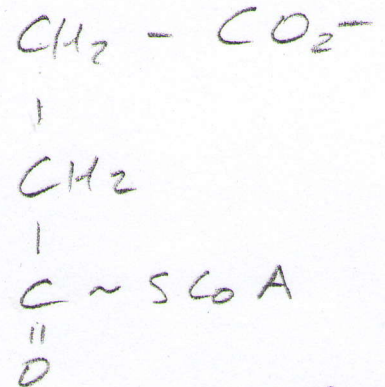 CH2 - CO2-
|
CH2
|
C ~ SCoA
||
O